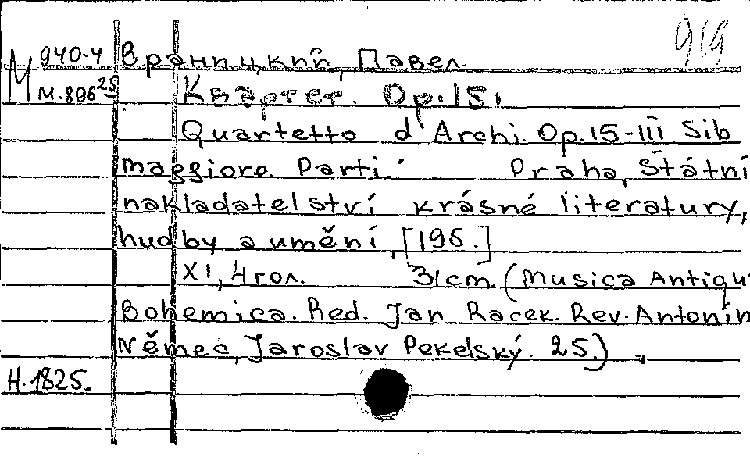 919
М 940-4 Враницкий, Павел
М.806 25 Квартет. Op. 15.
Quartetto d'Archi. Op. 15-III Sib
maggiore. Parti. Praha, Státní
nakladatelství krásné literatury,
hudby a umění, [195.]
XI, 4 гол. 31 cm. (Musica Antiqu
Bohemica. Red. Jan Racek. Rev. Antonín
Němec, Jaroslav Pekelský. 25.)
Н.1825.